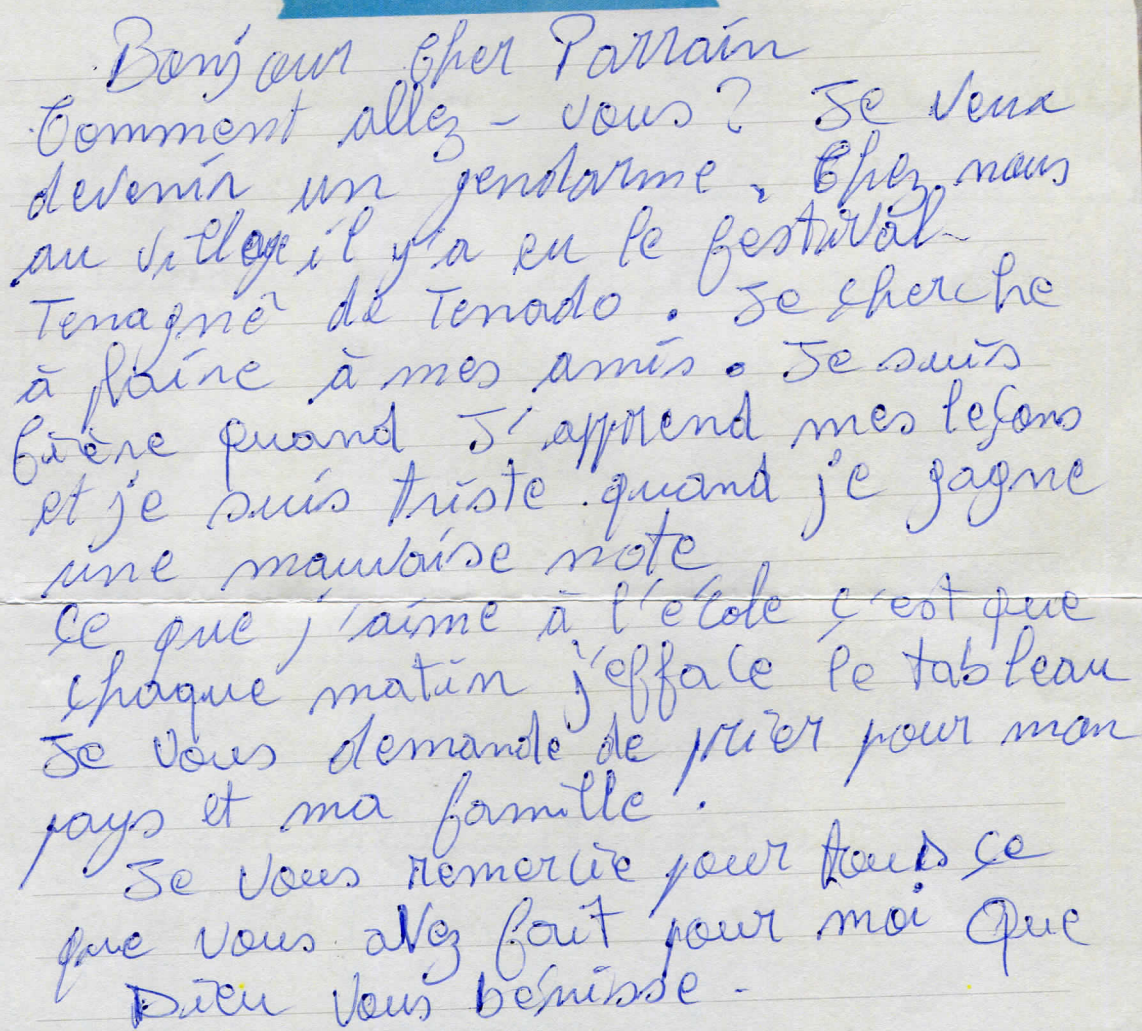 Bonjour cher Parrain
Comment allez-vous? Je veux
devenir un gendarme. Chez nous
au village il y'a eu le festival
Tenagné de Tenado. Je cherche
à plaire à mes amis. Je suis
fière quand J'apprend mes leçons
et je suis triste quand je gagne
une mauvaise note
ce que j'aime à l'école c'est que
chaque matin j'efface le tableau
Je vous demande de prier pour mon
pays et ma famille.
Je vous remercie pour tous ce
que vous avez fait pour moi Que
Dieu vous bénisse.